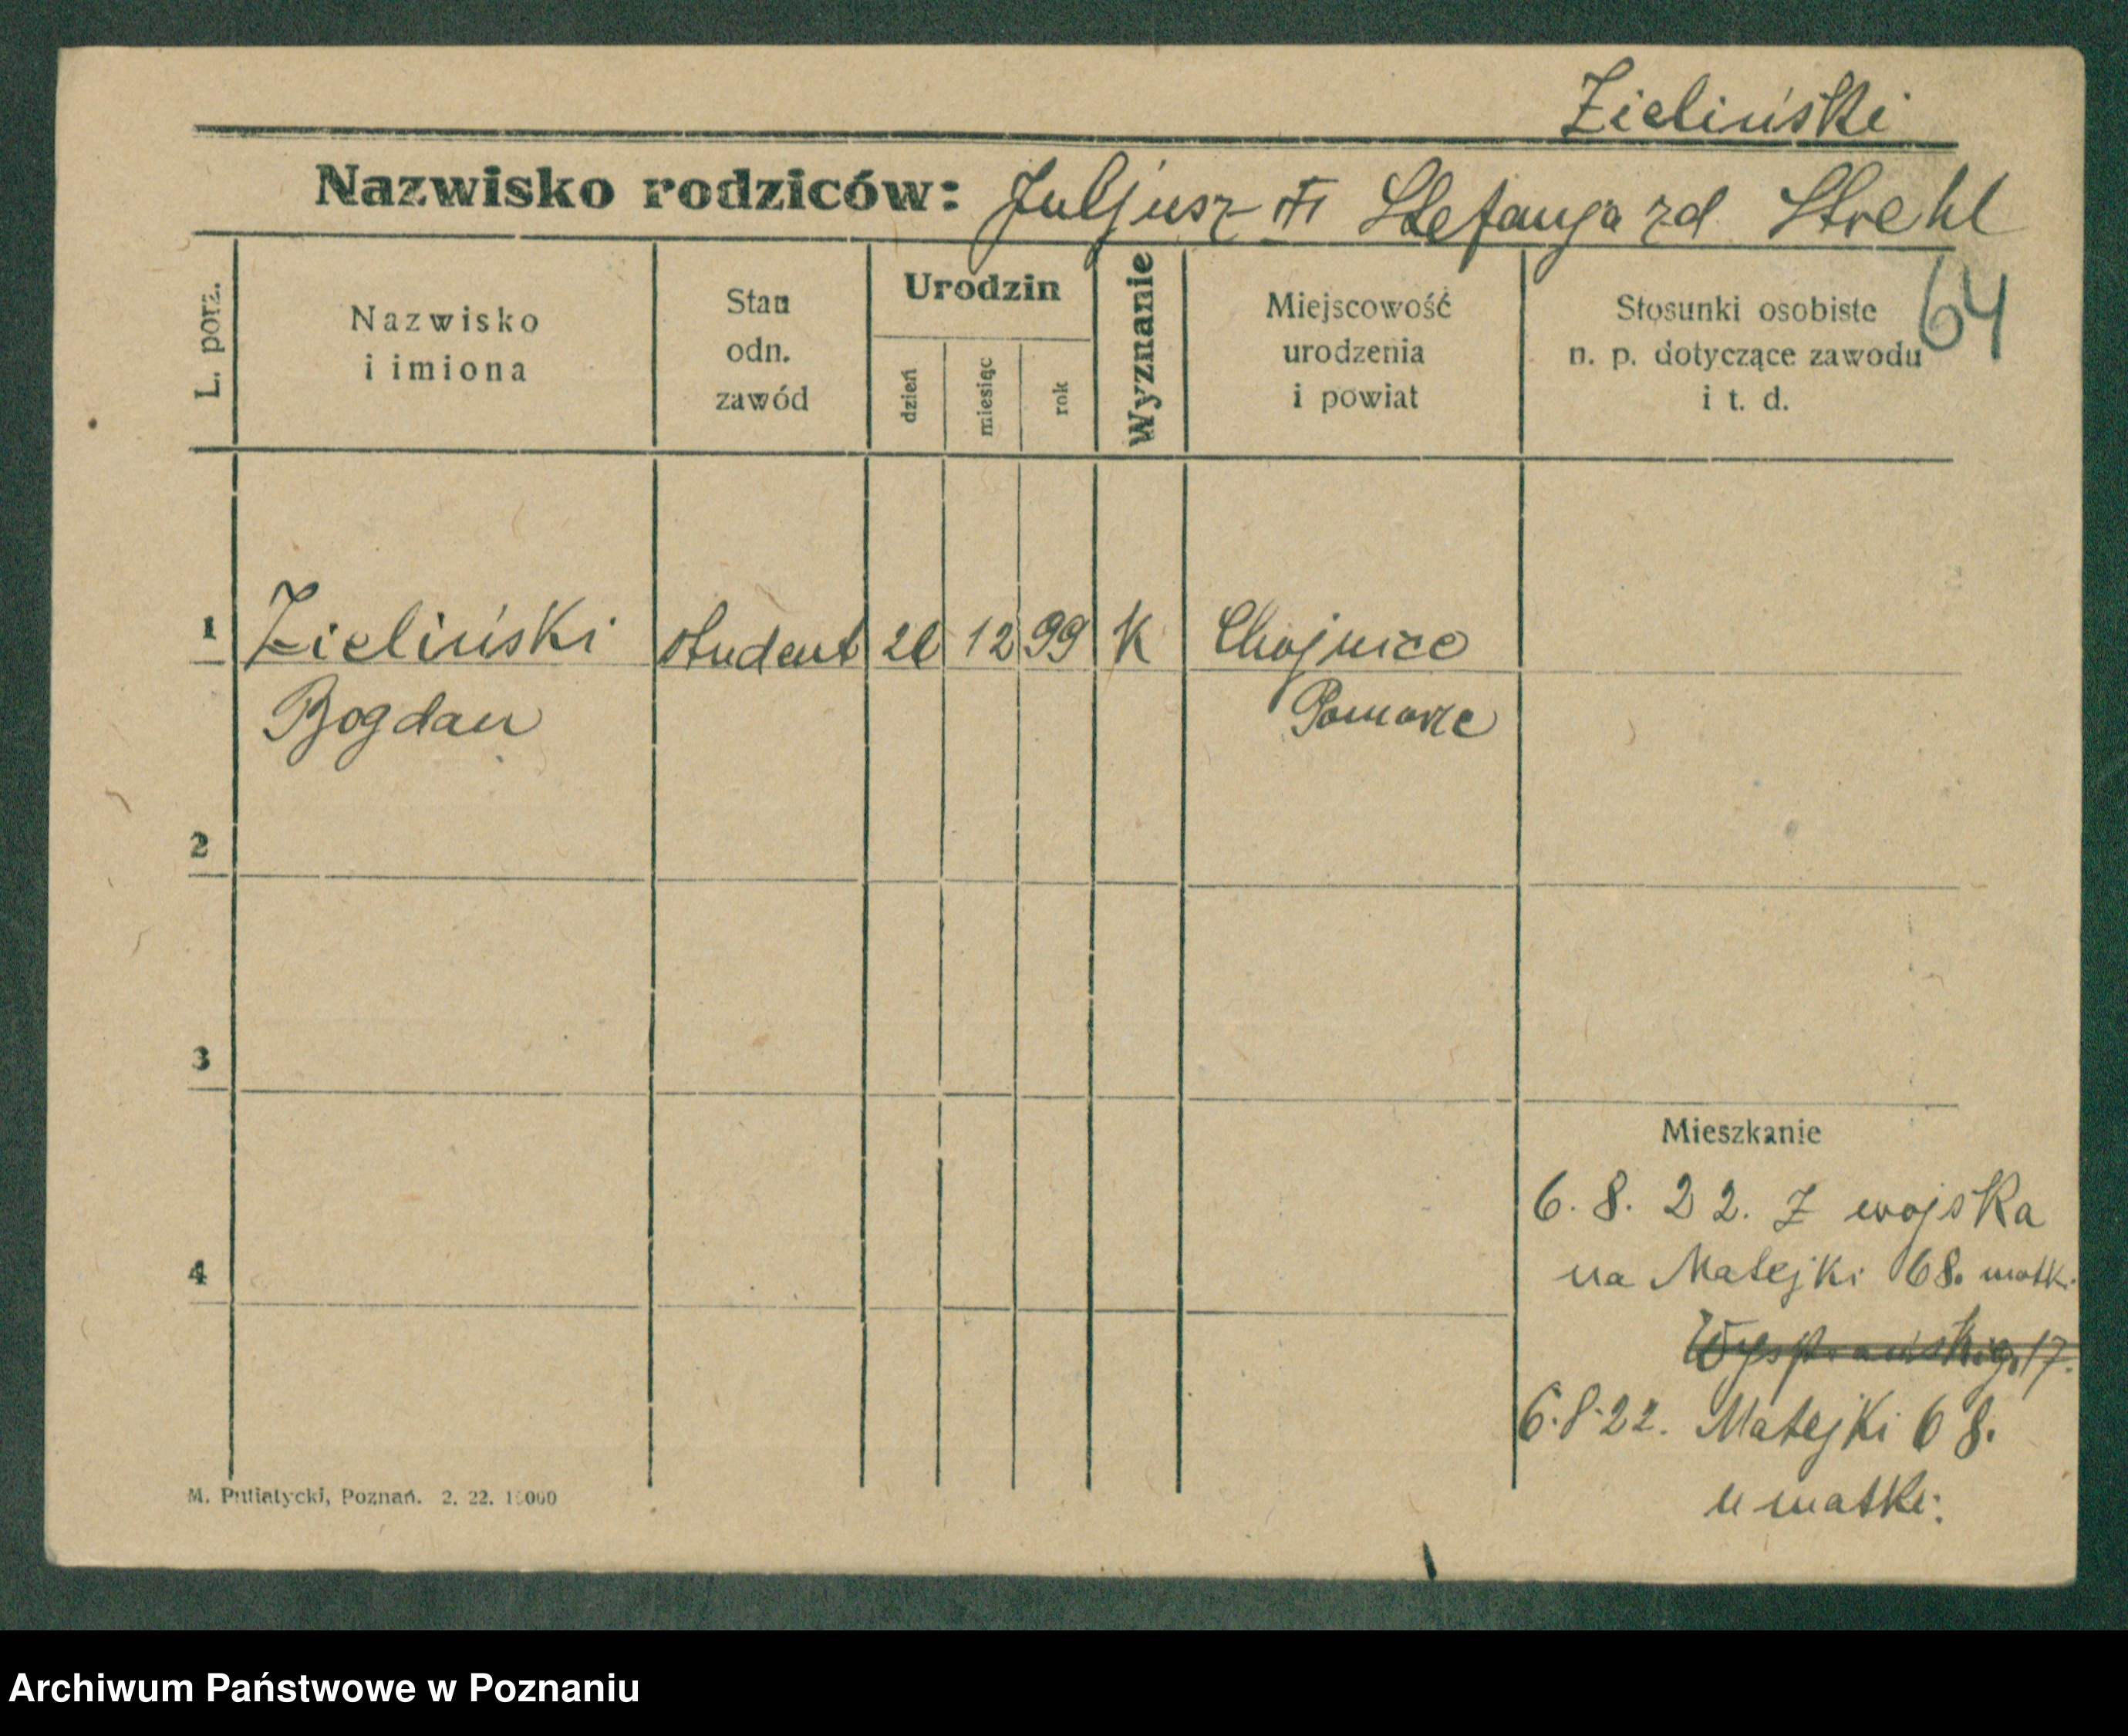 Zieliński
Nazwisko rodziców: Juljusz Stefanja zd Strehl
64
L. porz.
Nazwisko
i imiona
Stan
odn.
zawód
Urodzin
dzień
miesiąc
rok
Wyznanie
Miejscowość
urodzenia
i powiat
Stosunki osobiste
n. p. dotyczące zawodu
i t. d.
1 Zieliński student 12 99 K Chojnice
Bogdan Pomorze
2
3
4
Mieszkanie
6. 8. 22. Z wojska
na Matejki 68. matk.
17.
6.8.22. Matejki 68.
u matki.
M. Putiatycki, Poznań. 2. 22.
Archiwum Państwowe w Poznaniu